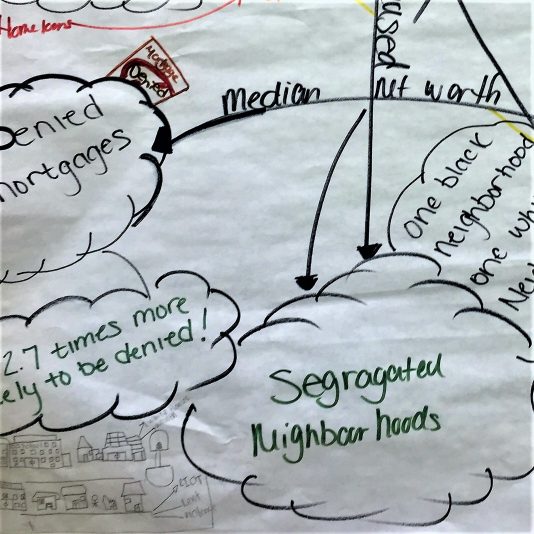 Home loans
Mortgage
Denied
Denied
mortgages
median net worth
used
one black
neighborhood
one whi
Nei
2.7 times more
ely to be denied!
Segragated
Neighbourhoods